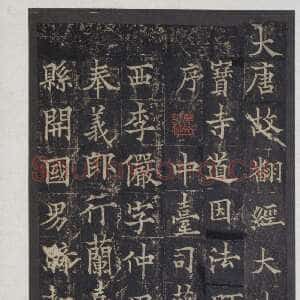 大唐故翻經大
寶寺道因法
序 中臺司
西李儼字仲
奉義郎行蘭
縣開國男